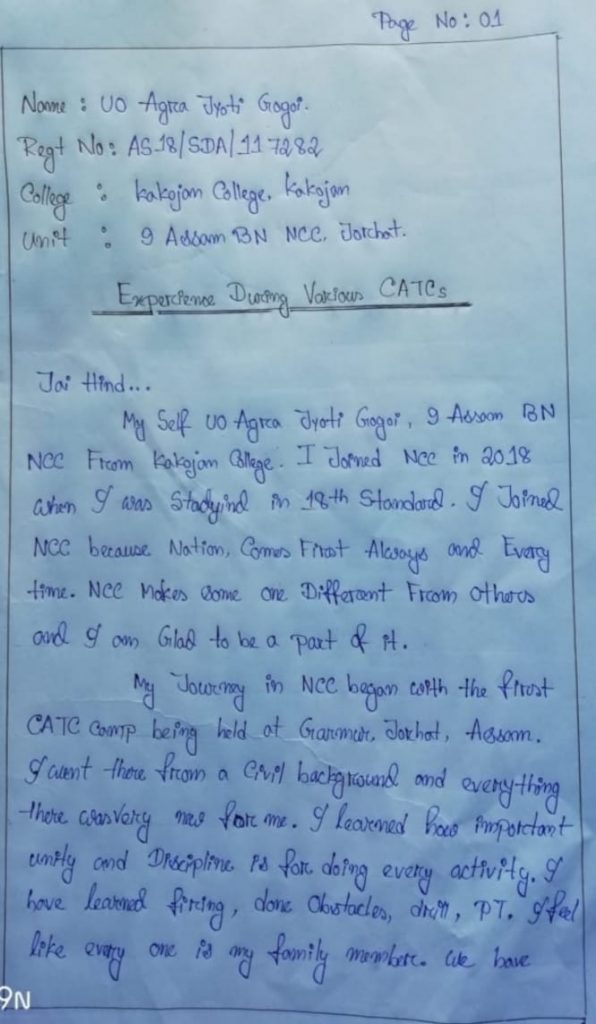 Page No: 01
Name : UO Agra Jyoti Gogoi.
Regt No: AS-18/SDA/117282
College : Kakojan College, Kakojan
Unit : 9 Assam BN NCC, Jorhat.
Experience During Various CATCs
Jai Hind...
My Self UO Agra Jyoti Gogoi, 9 Assam BN
NCC From Kakojan College. I Joined NCC in 2018
when I was Studyind in 18th Standard. I Joined
NCC because Nation, Comes First Always and Every
time. NCC Makes some one Different From others
and I am Glad to be a part of it.
My Journey in NCC began with the first
CATC Camp being held at Garmur, Jorhat, Assam.
I went there from a Civil background and everything
there was very new for me. I learned how important
unity and Discipline is for doing every activity. I
have learned firing, done Obstacles, drill, PT. I feel
like every one is my family member. We have
9N